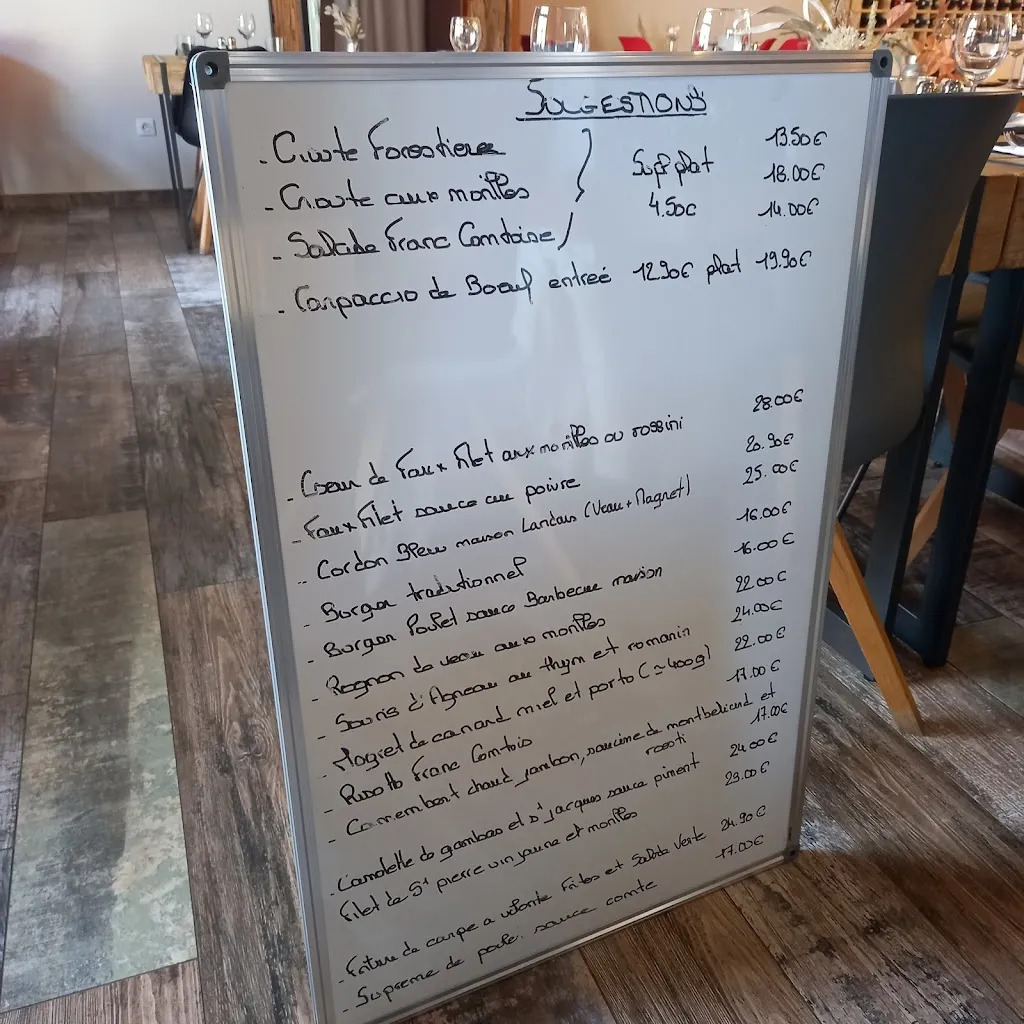 SUGGESTIONS
- Croute Forestiere 13.50€
- Croute aux morilles Supp plat 18.00€
- Salade Franc Comtoise 4.50€ 14.00€
- Carpaccio de Boeuf entreé 12.90€ plat 19.90€
- Coeur de Faux filet aux morilles ou rossini 28.00€
- Faux Filet sauce au poivre 20.90€
- Cordon Bleu maison Landais (Veau + Magret) 25.00€
- Burger traditionnel 16.00€
- Burger Poulet sauce Barbecue maison 16.00€
- Rognon de veau aux morilles 22.00€
- Souris d'Agneau au thym et romarin 24.00€
- Magret de canard miel et porto (≃400g) 22.00€
- Risotto Franc Comtois 17.00€
- Camembert chaud, jambon, saucisse de montbeliard et
rosti 17.00€
- gambas et St jacques sauce piment 24.00€
- Filet de St pierre vin jaune et morilles 23.00€
- Friture de carpe a volonte Frites et Salade Verte 24.90€
- Supreme de poulet sauce comte 17.00€